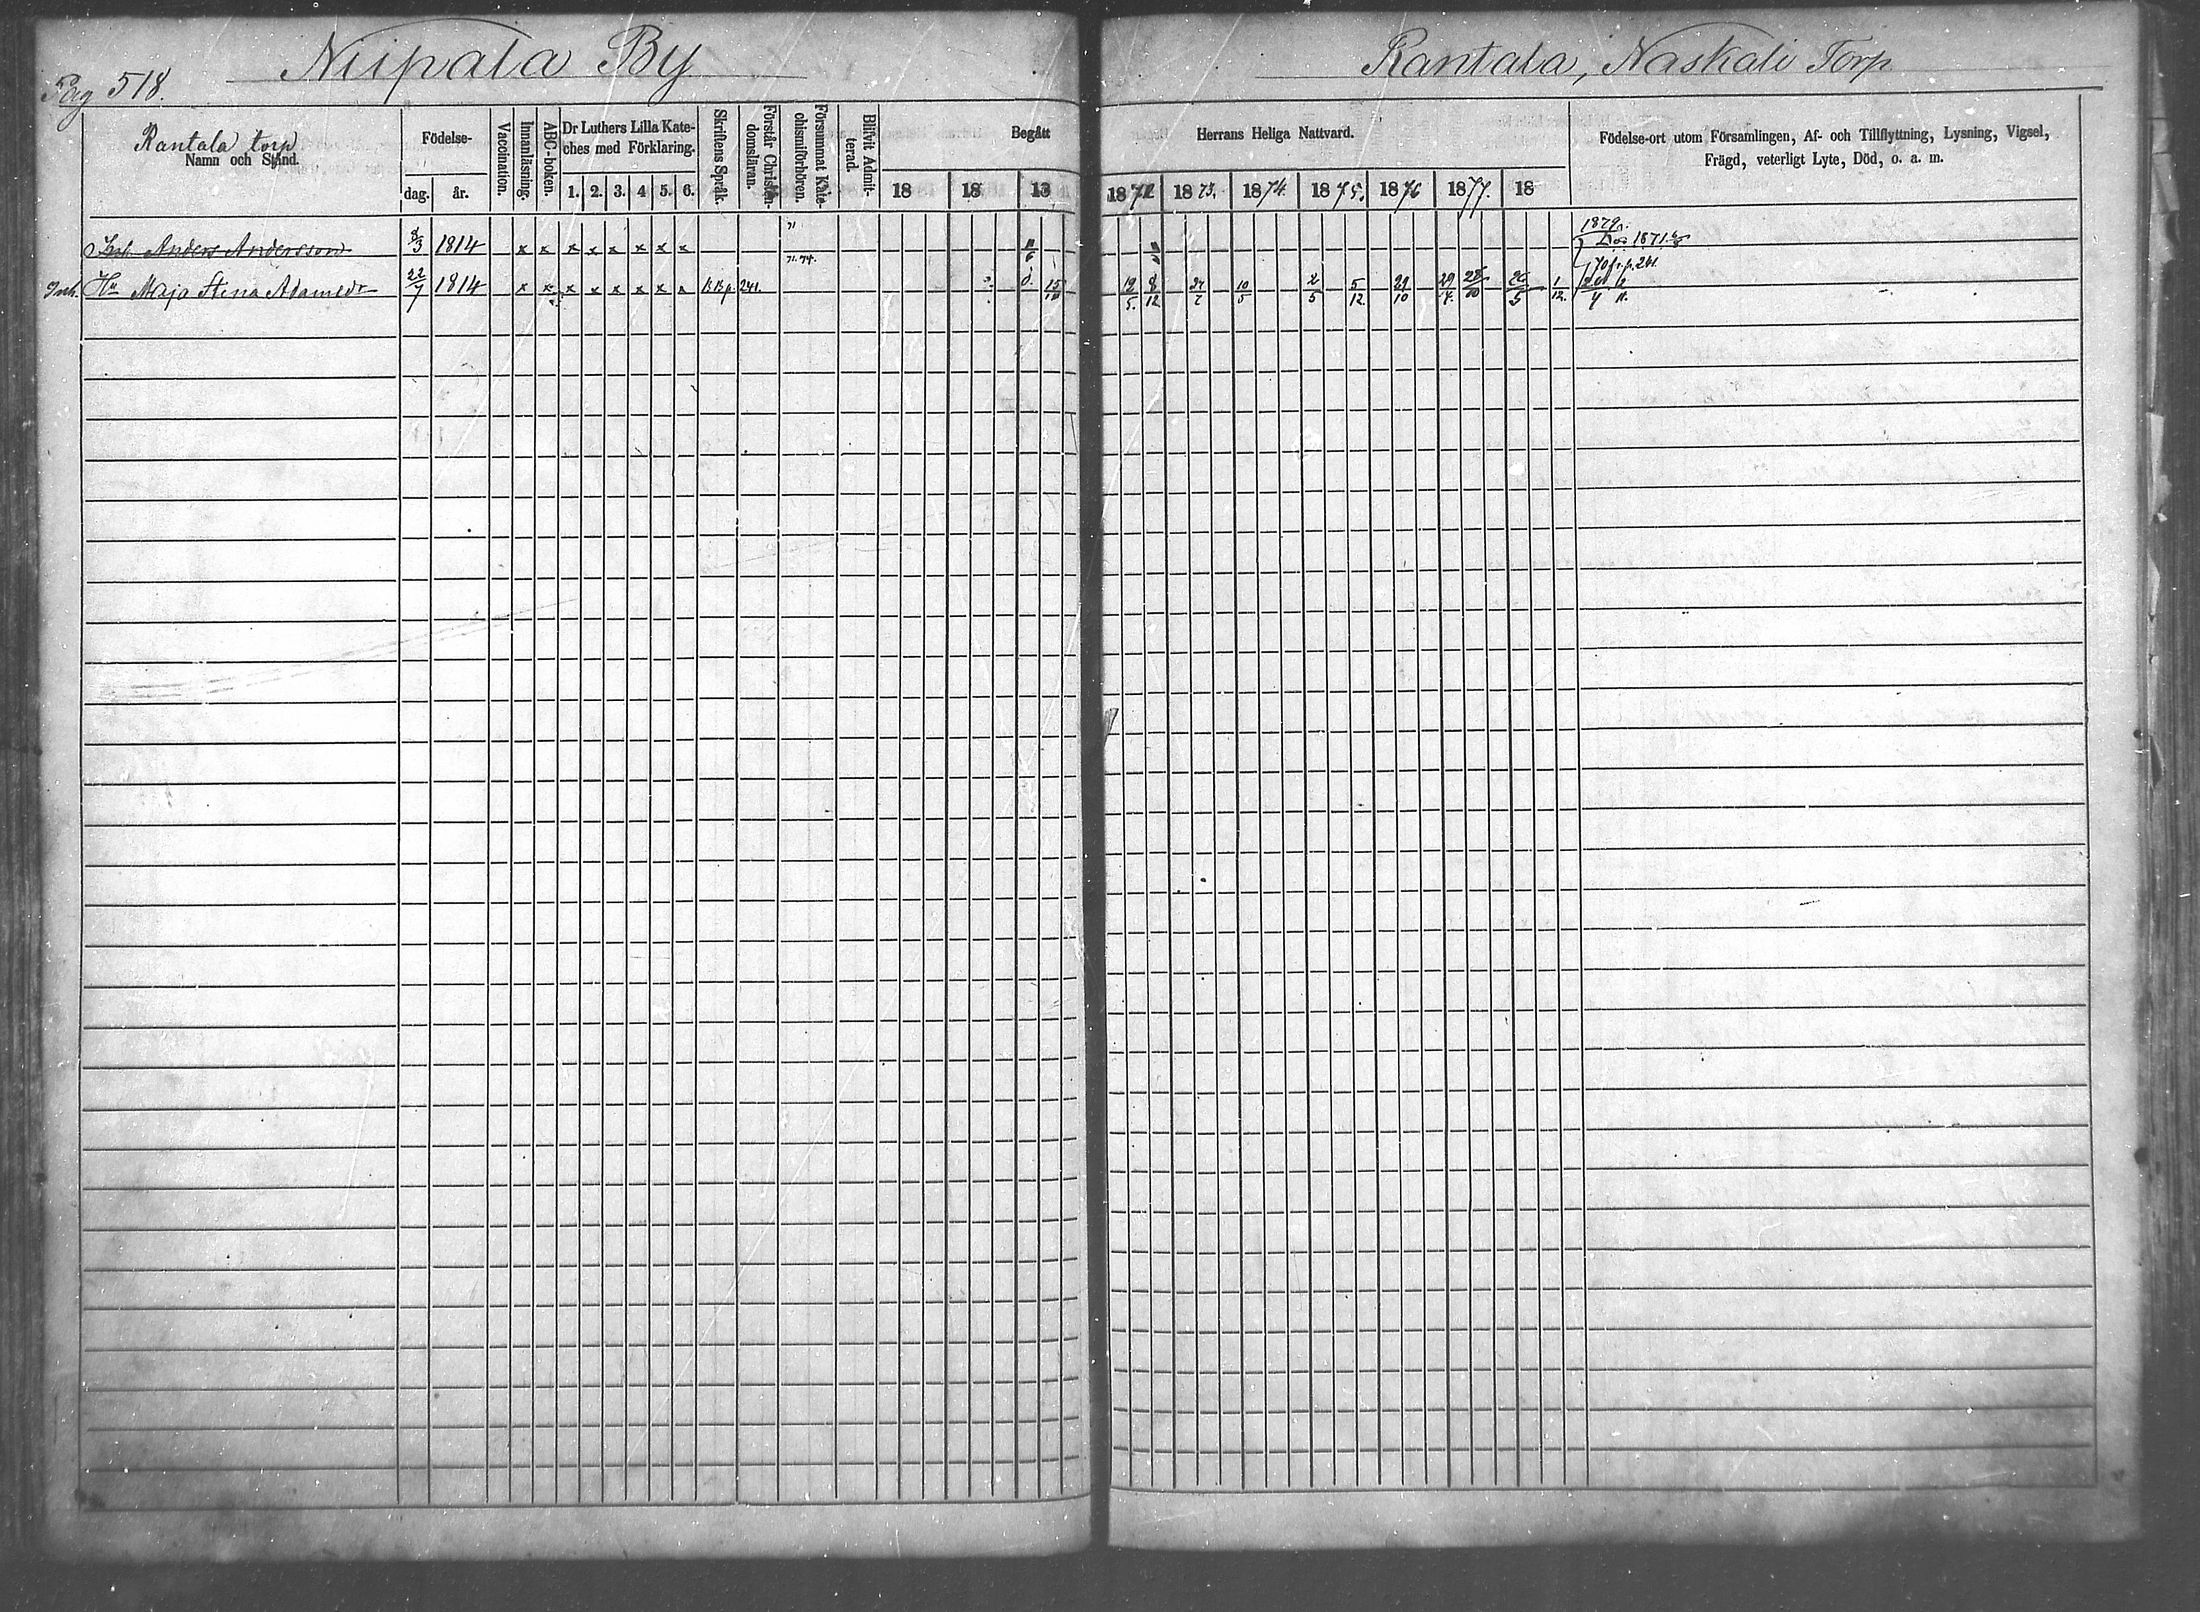 Niipala By
Rantala, Naskali Torp
Pag 518.
Rantala torp
Namn och Stånd.
Födelse-
dag. år.
Vaccination.
Innanläsning.
ABC-boken.
Dr Luthers Lilla Kate-
ches med Förklaring.
1. 2. 3. 4 5. 6.
Skriftens Språk.
Förstår Christen-
domsläran.
Försummat Kate-
chismiförhören.
Blifvit Admit-
terad.
Begått
Herrans Heliga Nattvard.
18 18 18 1872 1873. 1874. 1875. 1876 1877. 18
Födelse-ort utom Församlingen, Af- och Tillflyttning, Lysning, Vigsel,
Frägd, veterligt Lyte, Död, o. a. m.
Anders Andersson 8/3 1814 x x x x x x x x 71
Inh. Hu Maja Stina Adamsdr 22/7 1814 x x x x x x x x 71. 74. 15/10 19/5. 8/12 10/5 2/5 5/12. 29/10 29/4. 28/10 26/5 1/12.